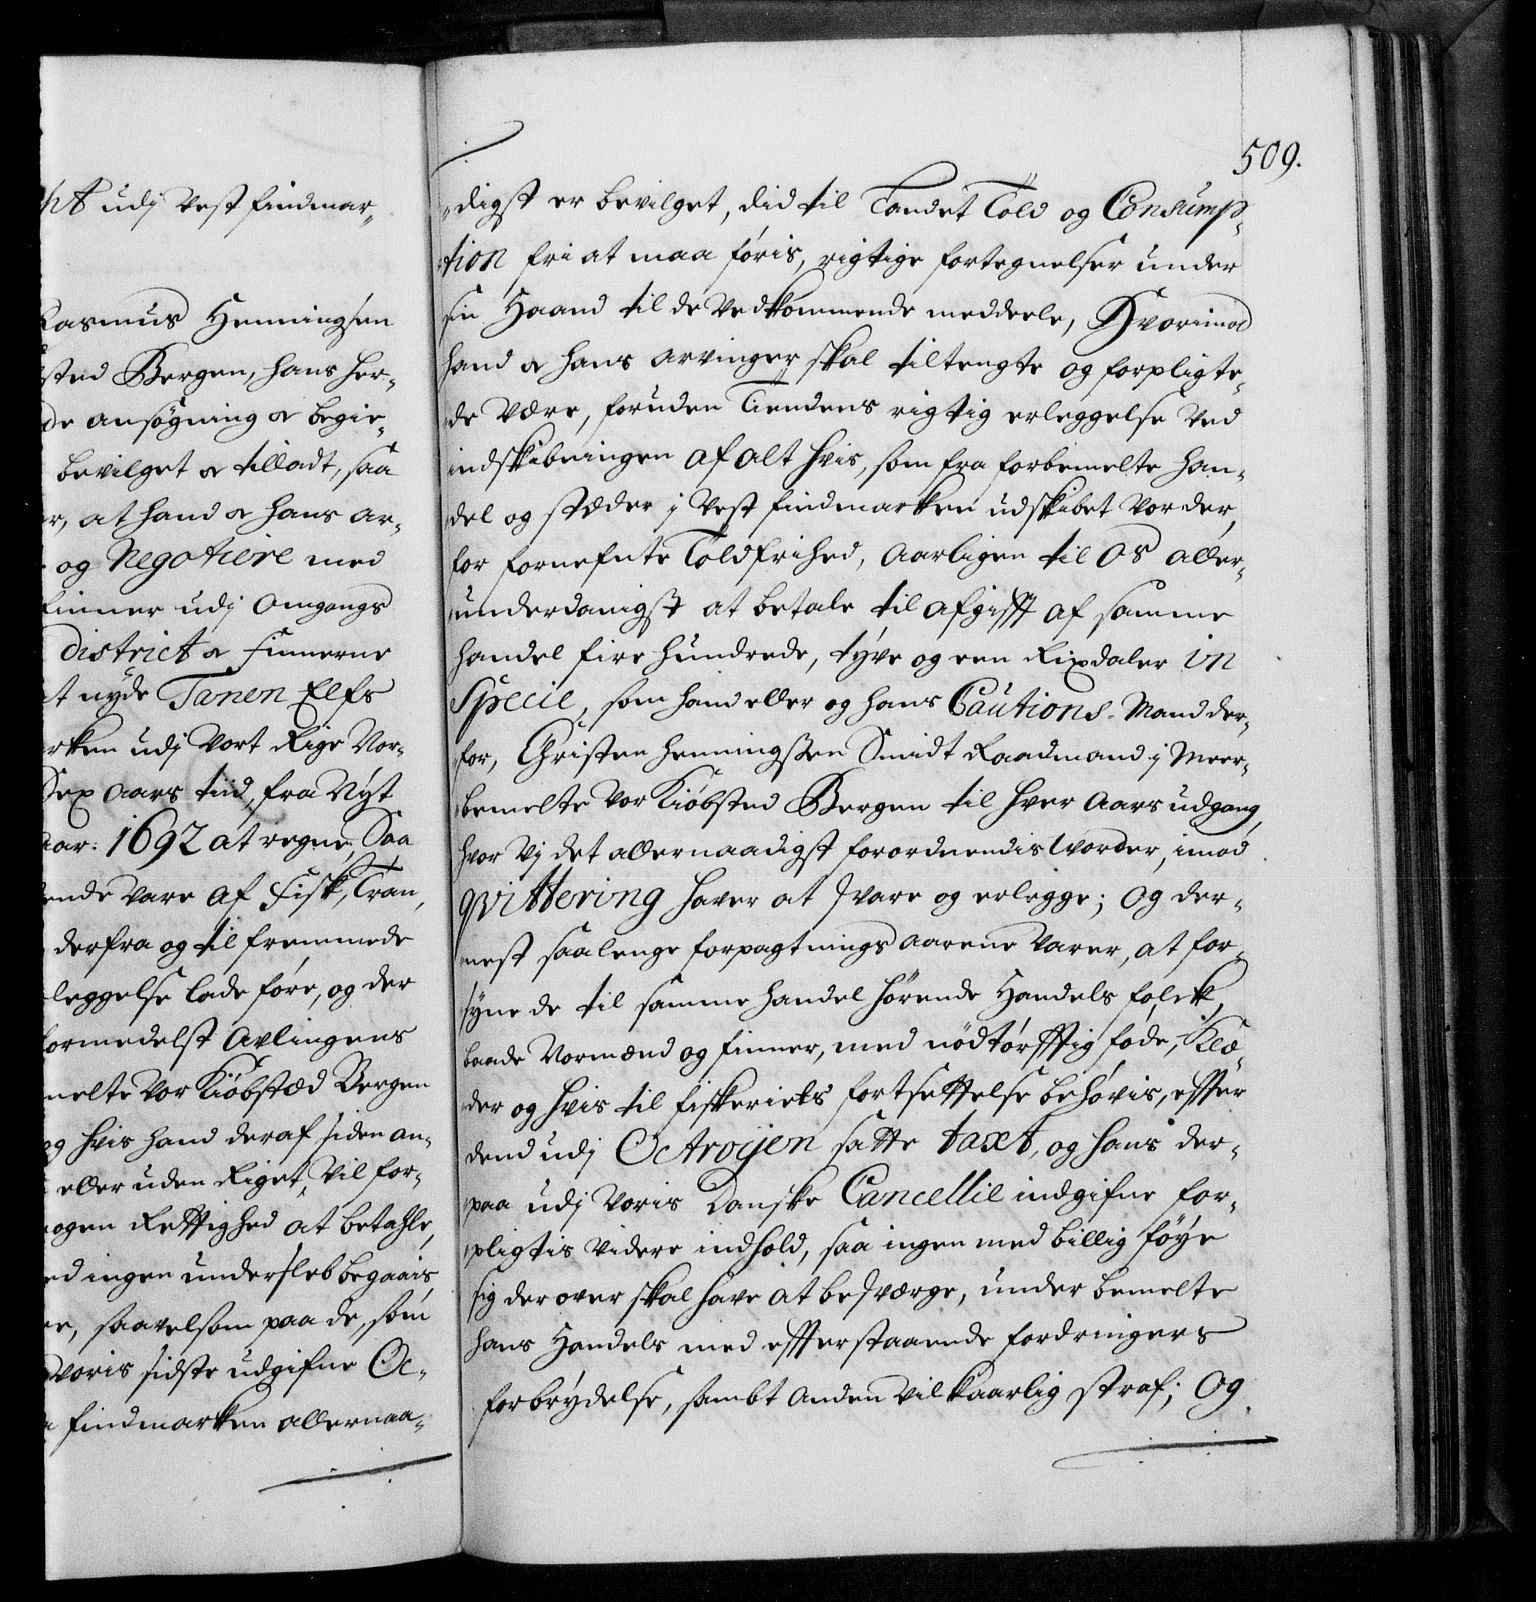 udj Vest findmar-
Rasmus Henningsen
sted Bergen, hans her-
de ansøgning & begie-
bevilget & tilladt, saa
r, at hand & hans ar-
og Negotiere med
finner udj Omgangs
District & Finnerne
t nyde Tanen Elfs
rken udj Vort Rige Nor-
Sex aars tiid, fra Nyt
aar: 1692 at regne, Saa
ende vare af Fisk, Tran,
derfra og til fremmede
leggelse lade føre, og der
formedelst Avlingens
melte Vor Kiøbstæd Bergen
og hvis hand deraf siden an-
eller uden Riget, vil for-
ogen Rettighed at betahle,
ed ingen undersleb begaais
re, saavelsom paa de, som
voris sidste udgifne Oc-
findmarken allernaa-
509.
-digst er bevilget, did til Landet Told og Consump-
-tion fri at maa føris, rigtige fortegnelser under
sin Haand til de Vedkommende meddeele, Hvorimod
hand & hans arvinger skal tiltengte og forpligte-
-de være, foruden Tiendens rigtig erleggelse ved
indskibningen af alt hvis, som fra forbemelte han-
-del og stæder j Vest findmarken udskibet vorder,
for fornefnte Toldfrihed, aarligen til os aller-
-underdanigst at betale til afgifft af samme
handel fire hundrede, tyve og een Rixdaler in
Specie, som hand eller og hans Cautions-Mand der-
-for, Christen Henningsen Smidt Raadmand j meer-
-bemelte vor Kiøbsted Bergen til hver aars udgang,
hvor Vj det allernaadigst forordnendis vorder, imod
qvittering haver at svare og erlegge; Og der-
-nest saalenge forpagtnings aarene varer, at for-
-syne de til samme handel hørende Handels folck,
baade Normænd og finner, med nødtørfftig føde, Klæ-
-der og hvis til fiskeriets fortsettelse behøvis, effter
dend udj Octroijen satte taxt, og hans der-
-paa udj voris Danske Cancellie indgifne for-
-pligtis videre indhold, saa ingen med billig føye
sig derover skal have at besværge, under bemelte
hans Handels med effterstaaende fordringers
forbrydelse, sambt anden vilkaarlig straf; Og